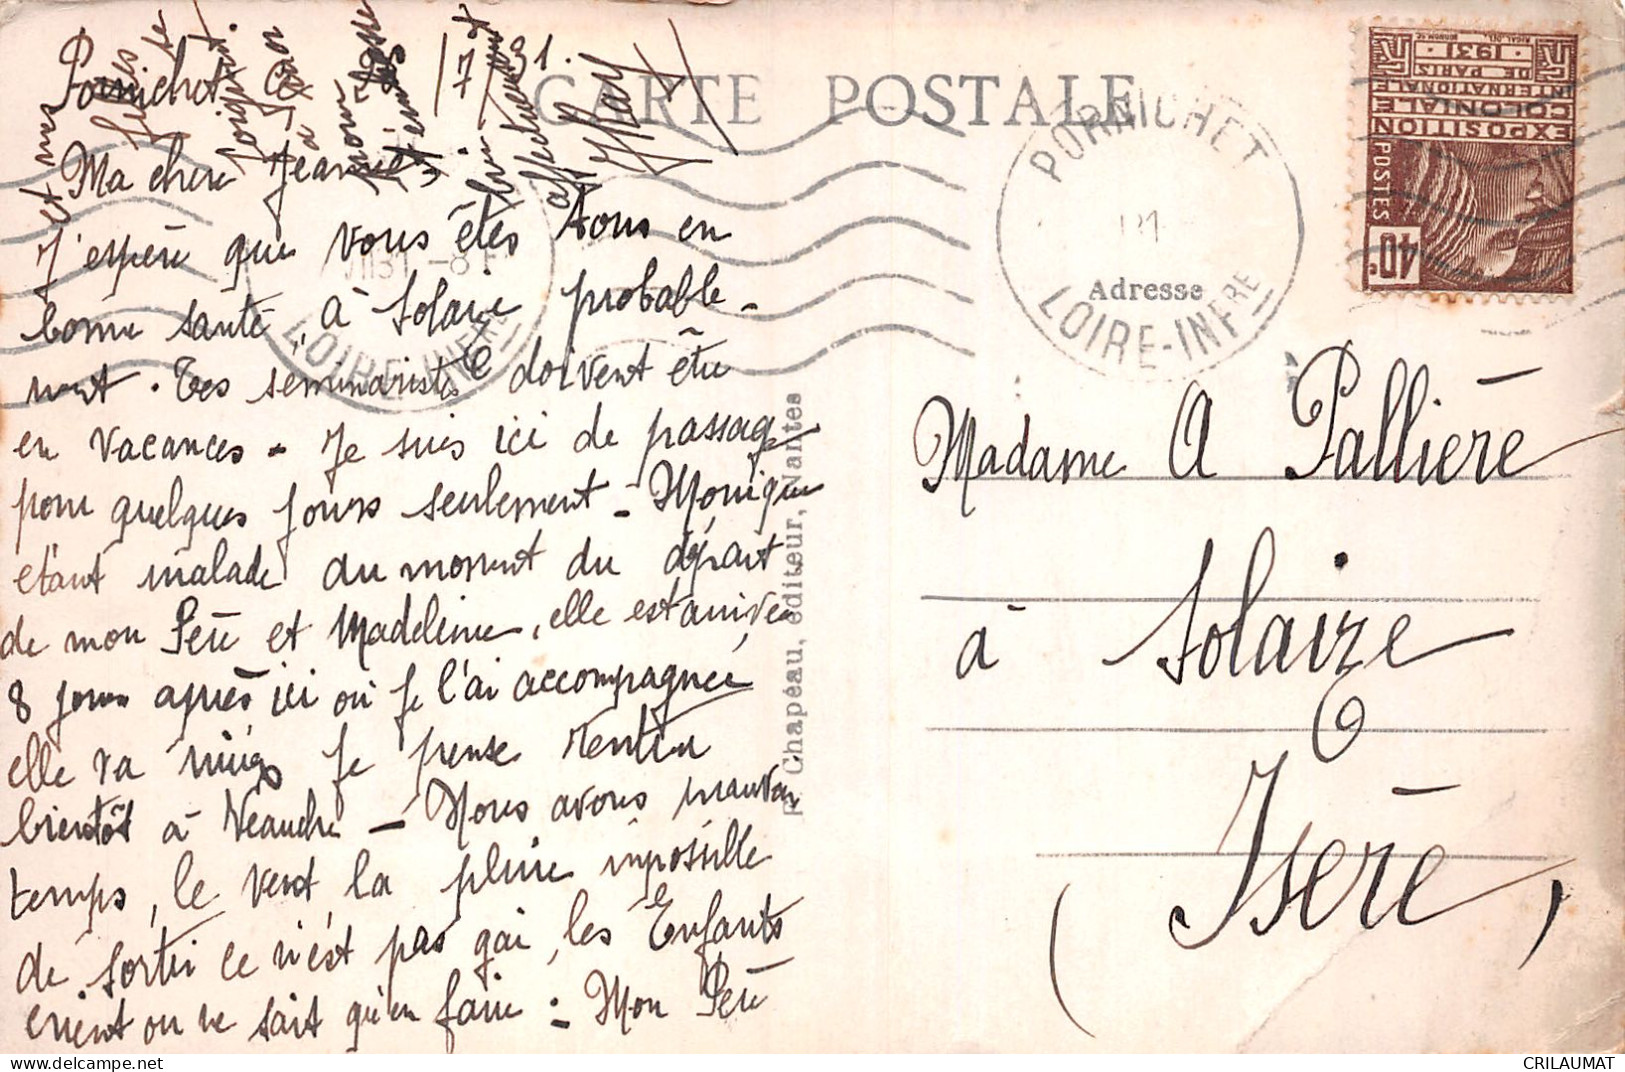 Pornichet 17 31.
CARTE POSTALE
Ma chère Jeanne
J'espère que vous êtes tous en
bonne santé, à Solaize probable-
ment. Tes séminaristes doivent être
en vacances - Je suis ici de passage
pour quelques jours seulement - Monique
étant malade au moment du départ
de mon Père et Madeleine, elle est arrivée
8 jours après ici où je l'ai accompagnée
elle va mieux je pense rentrer
bientôt à Veauche - Nous avons mauvais
temps, le vent la pluie impossible
de sortir ce n'est pas gai, les Enfants
crient on ne sait qu'en faire : Mon Père
et mes
filles se
joignent
à moi
pour
bien
affectueusement
F. Chapeau, éditeur, Nantes
PORNICHET
LOIRE-INFRE
Adresse
LOIRE-INFRE
1931
EXPOSITION
COLONIALE
INTERNATIONALE
DE PARIS
POSTES
40c.
Madame A Pallière
à Solaize
(Isère)
CRILAUMAT